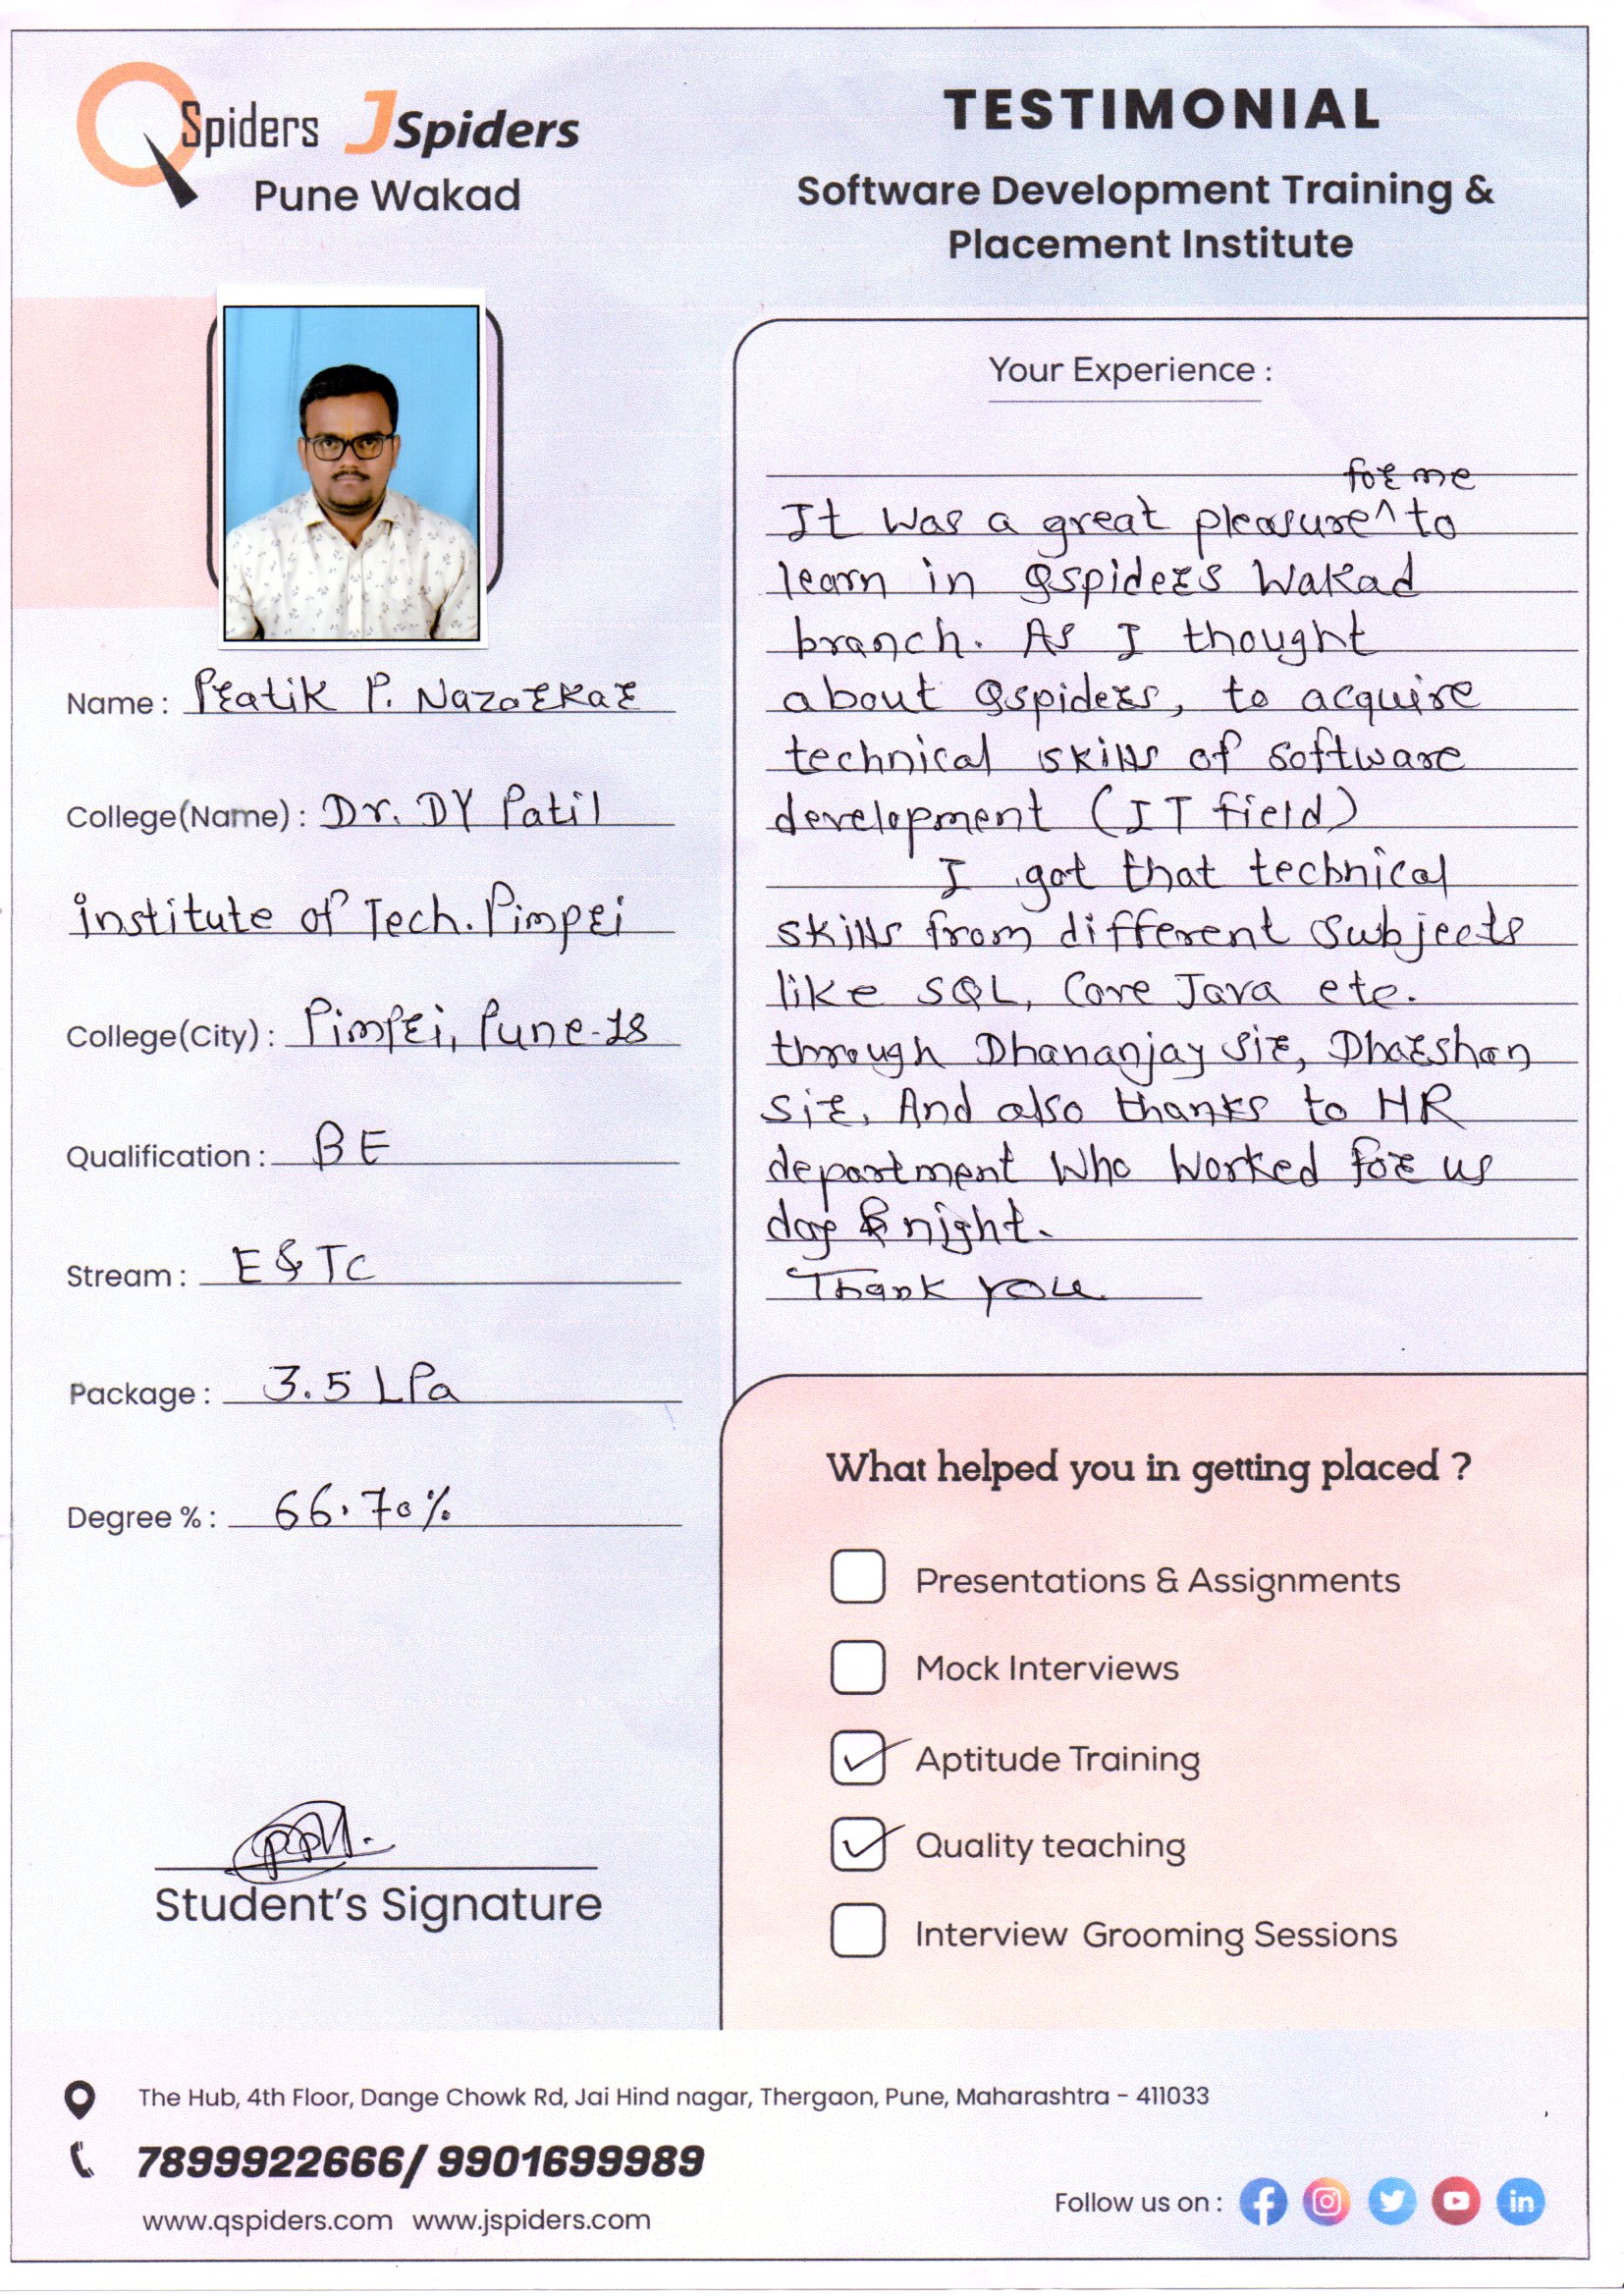 QSpiders JSpiders
Pune Wakad
TESTIMONIAL
Software Development Training &
Placement Institute
Name : Pratik P. Nazarkar
College(Name) : Dr. DY Patil
institute of Tech. Pimpri
College(City) : Pimpri, Pune-18
Qualification : BE
Stream : E & TC
Package : 3.5 LPa
Degree % : 66.70%
Student's Signature
Your Experience :
for me
It was a great pleasure ^ to
learn in Qspiders Wakad
branch. As I thought
about Qspiders, to acquire
technical skills of software
development (IT field)
I got that technical
skills from different subjects
like SQL, Core Java etc.
through Dhananjay sir, Dharshan
sir, And also thanks to HR
department who worked for us
day & night.
Thank you.
What helped you in getting placed ?
Presentations & Assignments
Mock Interviews
Aptitude Training
Quality teaching
Interview Grooming Sessions
The Hub, 4th Floor, Dange Chowk Rd, Jai Hind nagar, Thergaon, Pune, Maharashtra - 411033
7899922666/ 9901699989
www.qspiders.com www.jspiders.com
Follow us on :